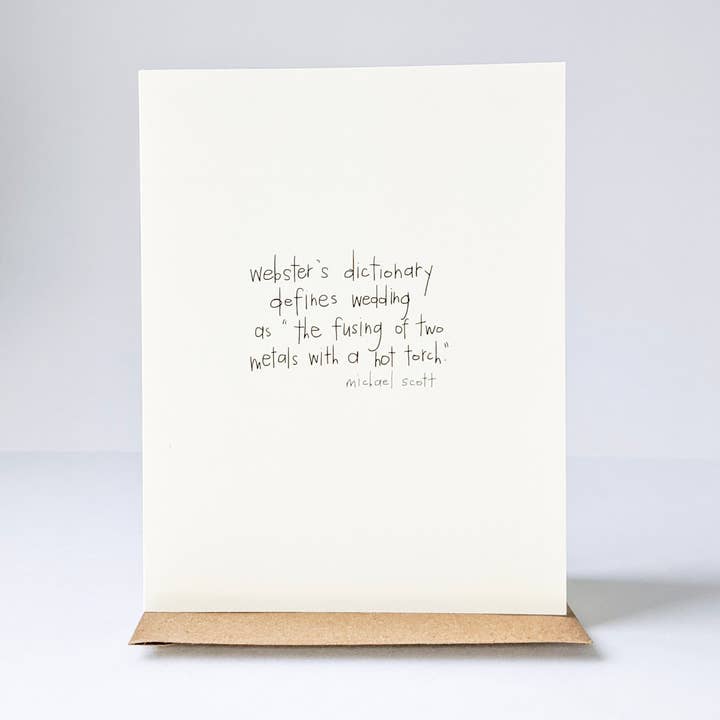 webster's dictionary
defines wedding
as "the fusing of two
metals with a hot torch."
michael scott